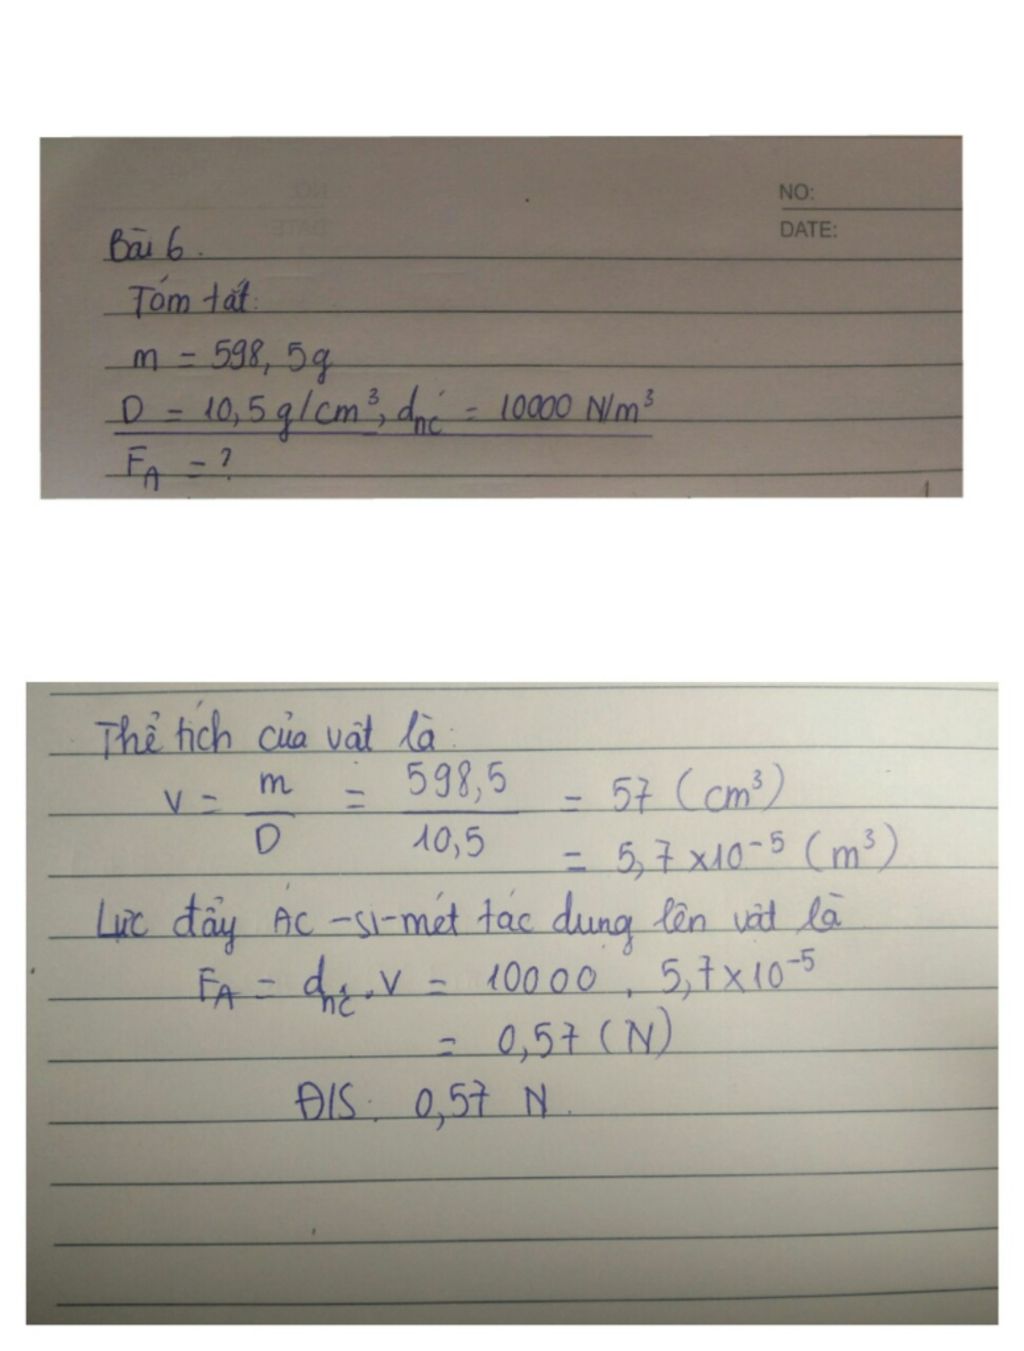 NO:
DATE:
Bài 6.
Tóm tắt:
m = 598,5g
D = 10,5 g/cm³, dnč = 10000 N/m³
FA = ?
Thể tích của vật là:
V = m/D = 598,5/10,5 = 57 (cm³)
= 5,7x10⁻⁵ (m³)
Lực đẩy Ác-si-mét tác dụng lên vật là
FA = dnč.V = 10000 . 5,7x10⁻⁵
= 0,57 (N)
Đ/S: 0,57 N.